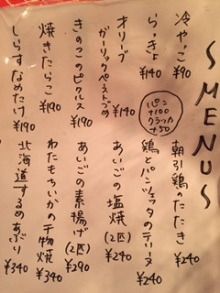 SMENUS
冷やっこ ¥90
らっきょ ¥140
オリーブ
ガーリックペーストづめ ¥140
きのこのピクルス ¥190
焼きたらこ ¥190
しらすなめたけ ¥190
パン
+100
クラッカ
+50
朝引鶏のたたき ¥240
鶏とパンチェッタのテリーヌ ¥240
あいごの塩焼 (2匹) ¥240
あいごの素揚げ (2匹) ¥290
わたもちいかの干物焼 ¥340
北海道するめあぶり ¥340